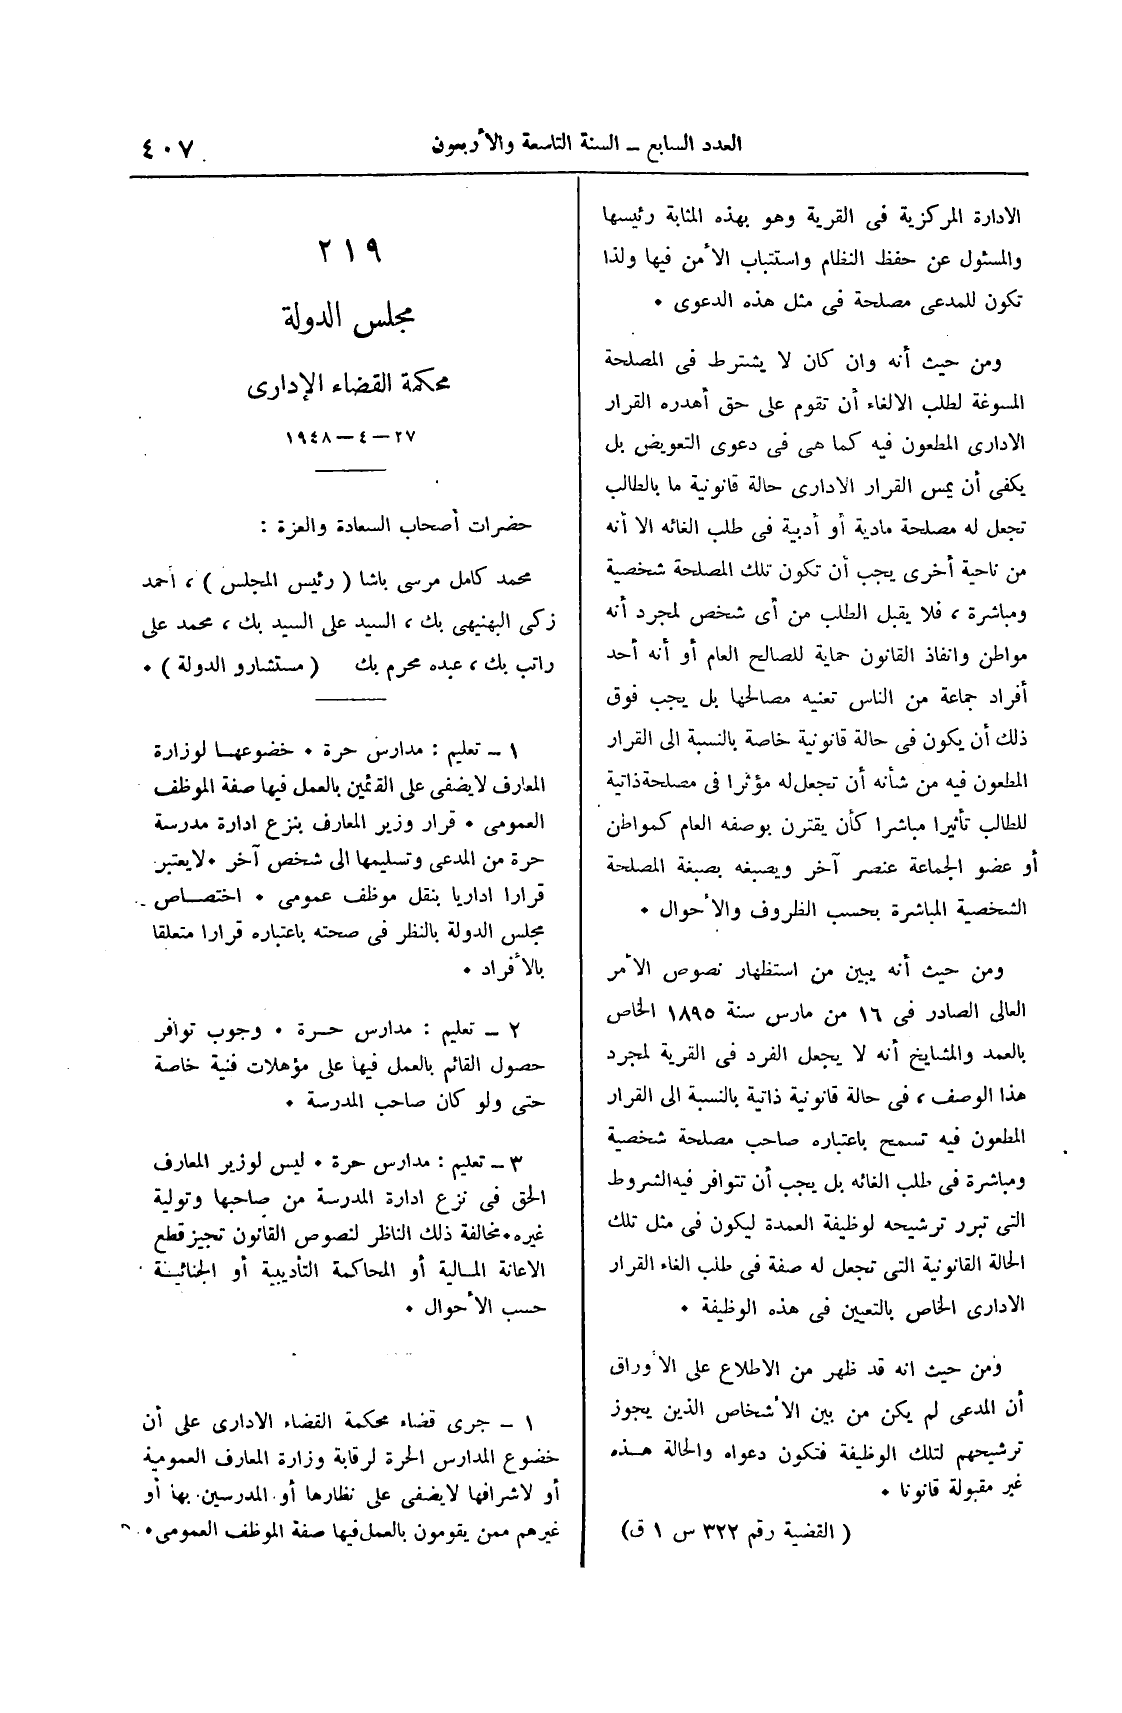 العدد السابع – السنة التاسعة والأربعون
٤٠٧
الادارة المركزية فى القرية وهو بهذه المثابة رئيسها
والمسئول عن حفظ النظام واستتباب الأمن فيها ولذا
تكون للمدعى مصلحة فى مثل هذه الدعوى .
ومن حيث أنه وان كان لا يشترط فى المصلحة
المسوغة لطلب الالغاء أن تقوم على حق أهدره القرار
الادارى المطعون فيه كما هى فى دعوى التعويض بل
يكفى أن يمس القرار الادارى حالة قانونية ما بالطالب
تجعل له مصلحة مادية أو أدبية فى طلب الغائه الا أنه
من ناحية أخرى يجب أن تكون تلك المصلحة شخصية
ومباشرة ، فلا يقبل الطلب من أى شخص لمجرد أنه
مواطن وانفاذ القانون حماية للصالح العام أو أنه أحد
أفراد جماعة من الناس تعنيه مصالحها بل يجب فوق
ذلك أن يكون فى حالة قانونية خاصة بالنسبة الى القرار
المطعون فيه من شأنه أن تجعل له مؤثرا فى مصلحة ذاتية
للطالب تأثيرا مباشرا كأن يقترن بوصفه العام كمواطن
أو عضو الجماعة عنصر آخر ويصبغه بصبغة المصلحة
الشخصية المباشرة بحسب الظروف والأحوال .
ومن حيث أنه يبين من استظهار نصوص الأمر
العالى الصادر فى ١٦ من مارس سنة ١٨٩٥ الخاص
بالعمد والمشايخ أنه لا يجعل الفرد فى القرية لمجرد
هذا الوصف ، فى حالة قانونية ذاتية بالنسبة الى القرار
المطعون فيه تسمح باعتباره صاحب مصلحة شخصية
ومباشرة فى طلب الغائه بل يجب أن تتوافر فيه الشروط
التى تبرر ترشيحه لوظيفة العمدة ليكون فى مثل تلك
الحالة القانونية التى تجعل له صفة فى طلب الغاء القرار
الادارى الخاص بالتعيين فى هذه الوظيفة .
ومن حيث انه قد ظهر من الاطلاع على الأوراق
أن المدعى لم يكن من بين الأشخاص الذين يجوز
ترشيحهم لتلك الوظيفة فتكون دعواه والحالة هذه
غير مقبولة قانونا .
( القضية رقم ٣٢٢ س ١ ق)
٢١٩
مجلس الدولة
محكمة القضاء الإدارى
٢٧ – ٤ – ١٩٤٨
حضرات أصحاب السعادة والعزة :
محمد كامل مرسى باشا ( رئيس المجلس ) ، أحمد
زكى البهنيهى بك ، السيد على السيد بك ، محمد على
راتب بك ، عبده محرم بك ( مستشارو الدولة ) .
١ – تعليم : مدارس حرة . خضوعها لوزارة
المعارف لا يضفى على القائمين بالعمل فيها صفة الموظف
العمومى . قرار وزير المعارف بنزع ادارة مدرسة
حرة من المدعى وتسليمها الى شخص آخر . لا يعتبر
قرارا اداريا بنقل موظف عمومى . اختصاص
مجلس الدولة بالنظر فى صحته باعتباره قرارا متعلقا
بالأفراد .
٢ – تعليم : مدارس حرة . وجوب توافر
حصول القائم بالعمل فيها على مؤهلات فنية خاصة
حتى ولو كان صاحب المدرسة .
٣ – تعليم : مدارس حرة . ليس لوزير المعارف
الحق فى نزع ادارة المدرسة من صاحبها وتولية
غيره . مخالفة ذلك الناظر لنصوص القانون تجيز قطع
الاعانة المالية أو المحاكمة التأديبية أو الجنائية
حسب الأحوال .
١ – جرى قضاء محكمة القضاء الادارى على أن
خضوع المدارس الحرة لرقابة وزارة المعارف العمومية
أو لاشرافها لا يضفى على نظارها أو المدرسين بها أو
غيرهم ممن يقومون بالعمل فيها صفة الموظف العمومى .